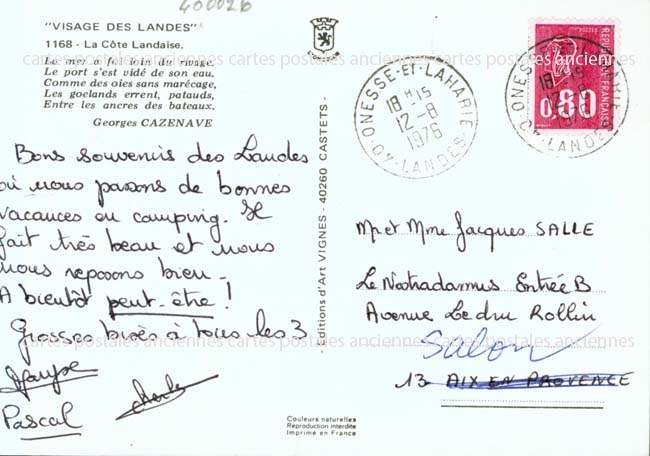 400026
"VISAGE DES LANDES"
1168 - La Côte Landaise.
La mer a fui loin du rivage.
Le port s'est vidé de son eau.
Comme des oies sans marécage,
Les goelands errent, patauds,
Entre les ancres des bateaux.
Georges CAZENAVE
Bons souvenirs des Landes
où nous passons de bonnes
vacances en camping. Il
fait très beau et nous
nous reposons bien -
A bientôt peut-être !
Grosses bises à tous les 3.
Pascal
- Editions d'Art VIGNES - 40260 CASTETS -
Couleurs naturelles
Reproduction interdite
Imprimé en France
ONESSE-ET-LAHARIE
18 H 15
12-8
1976
40-LANDES
REPUBLIQUE FRANÇAISE
0,80
ONESSE-ET-LAHARIE
18 H 15
12-8
1976
40-LANDES
Mr et Mme Jacques SALLE
Le Nostradamus Entrée B
Avenue Ledru Rollin
Salon
13 AIX EN PROVENCE
cartes postales anciennes cartes postales anciennes cartes postales anciennes
cartes postales anciennes cartes postales anciennes